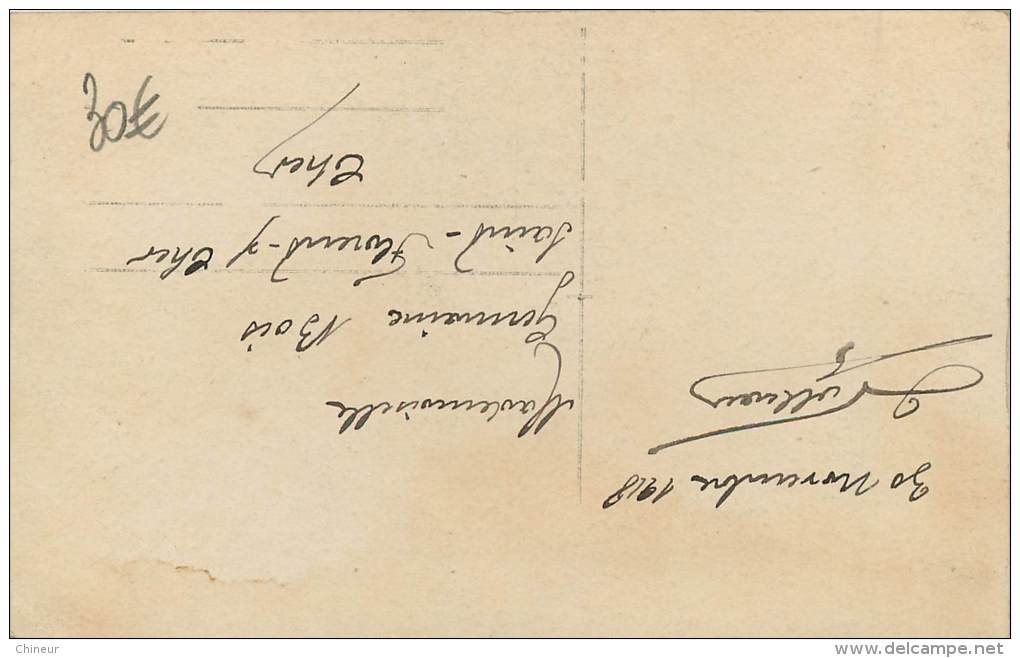 30 Novembre 1918
Mademoiselle
Germaine Bois
Saint-Florent-s/ Cher
Cher
30€
Chineur
www.delcampe.net